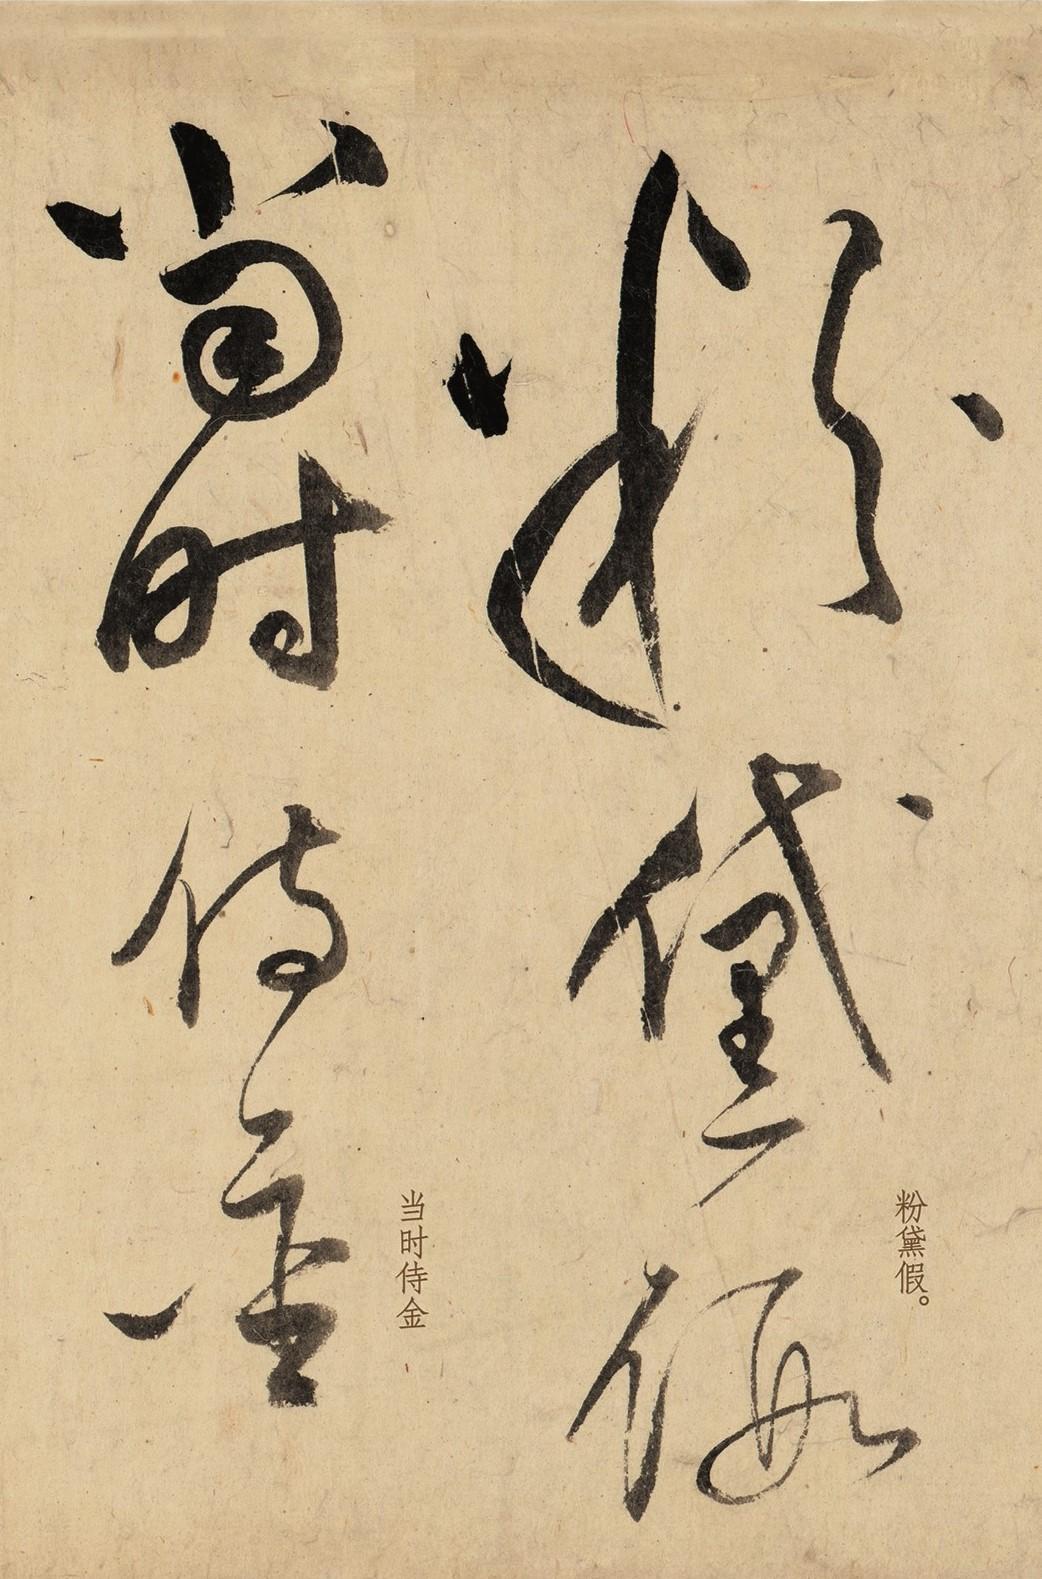 粉黛假
粉黛假。
當時侍金
当时侍金